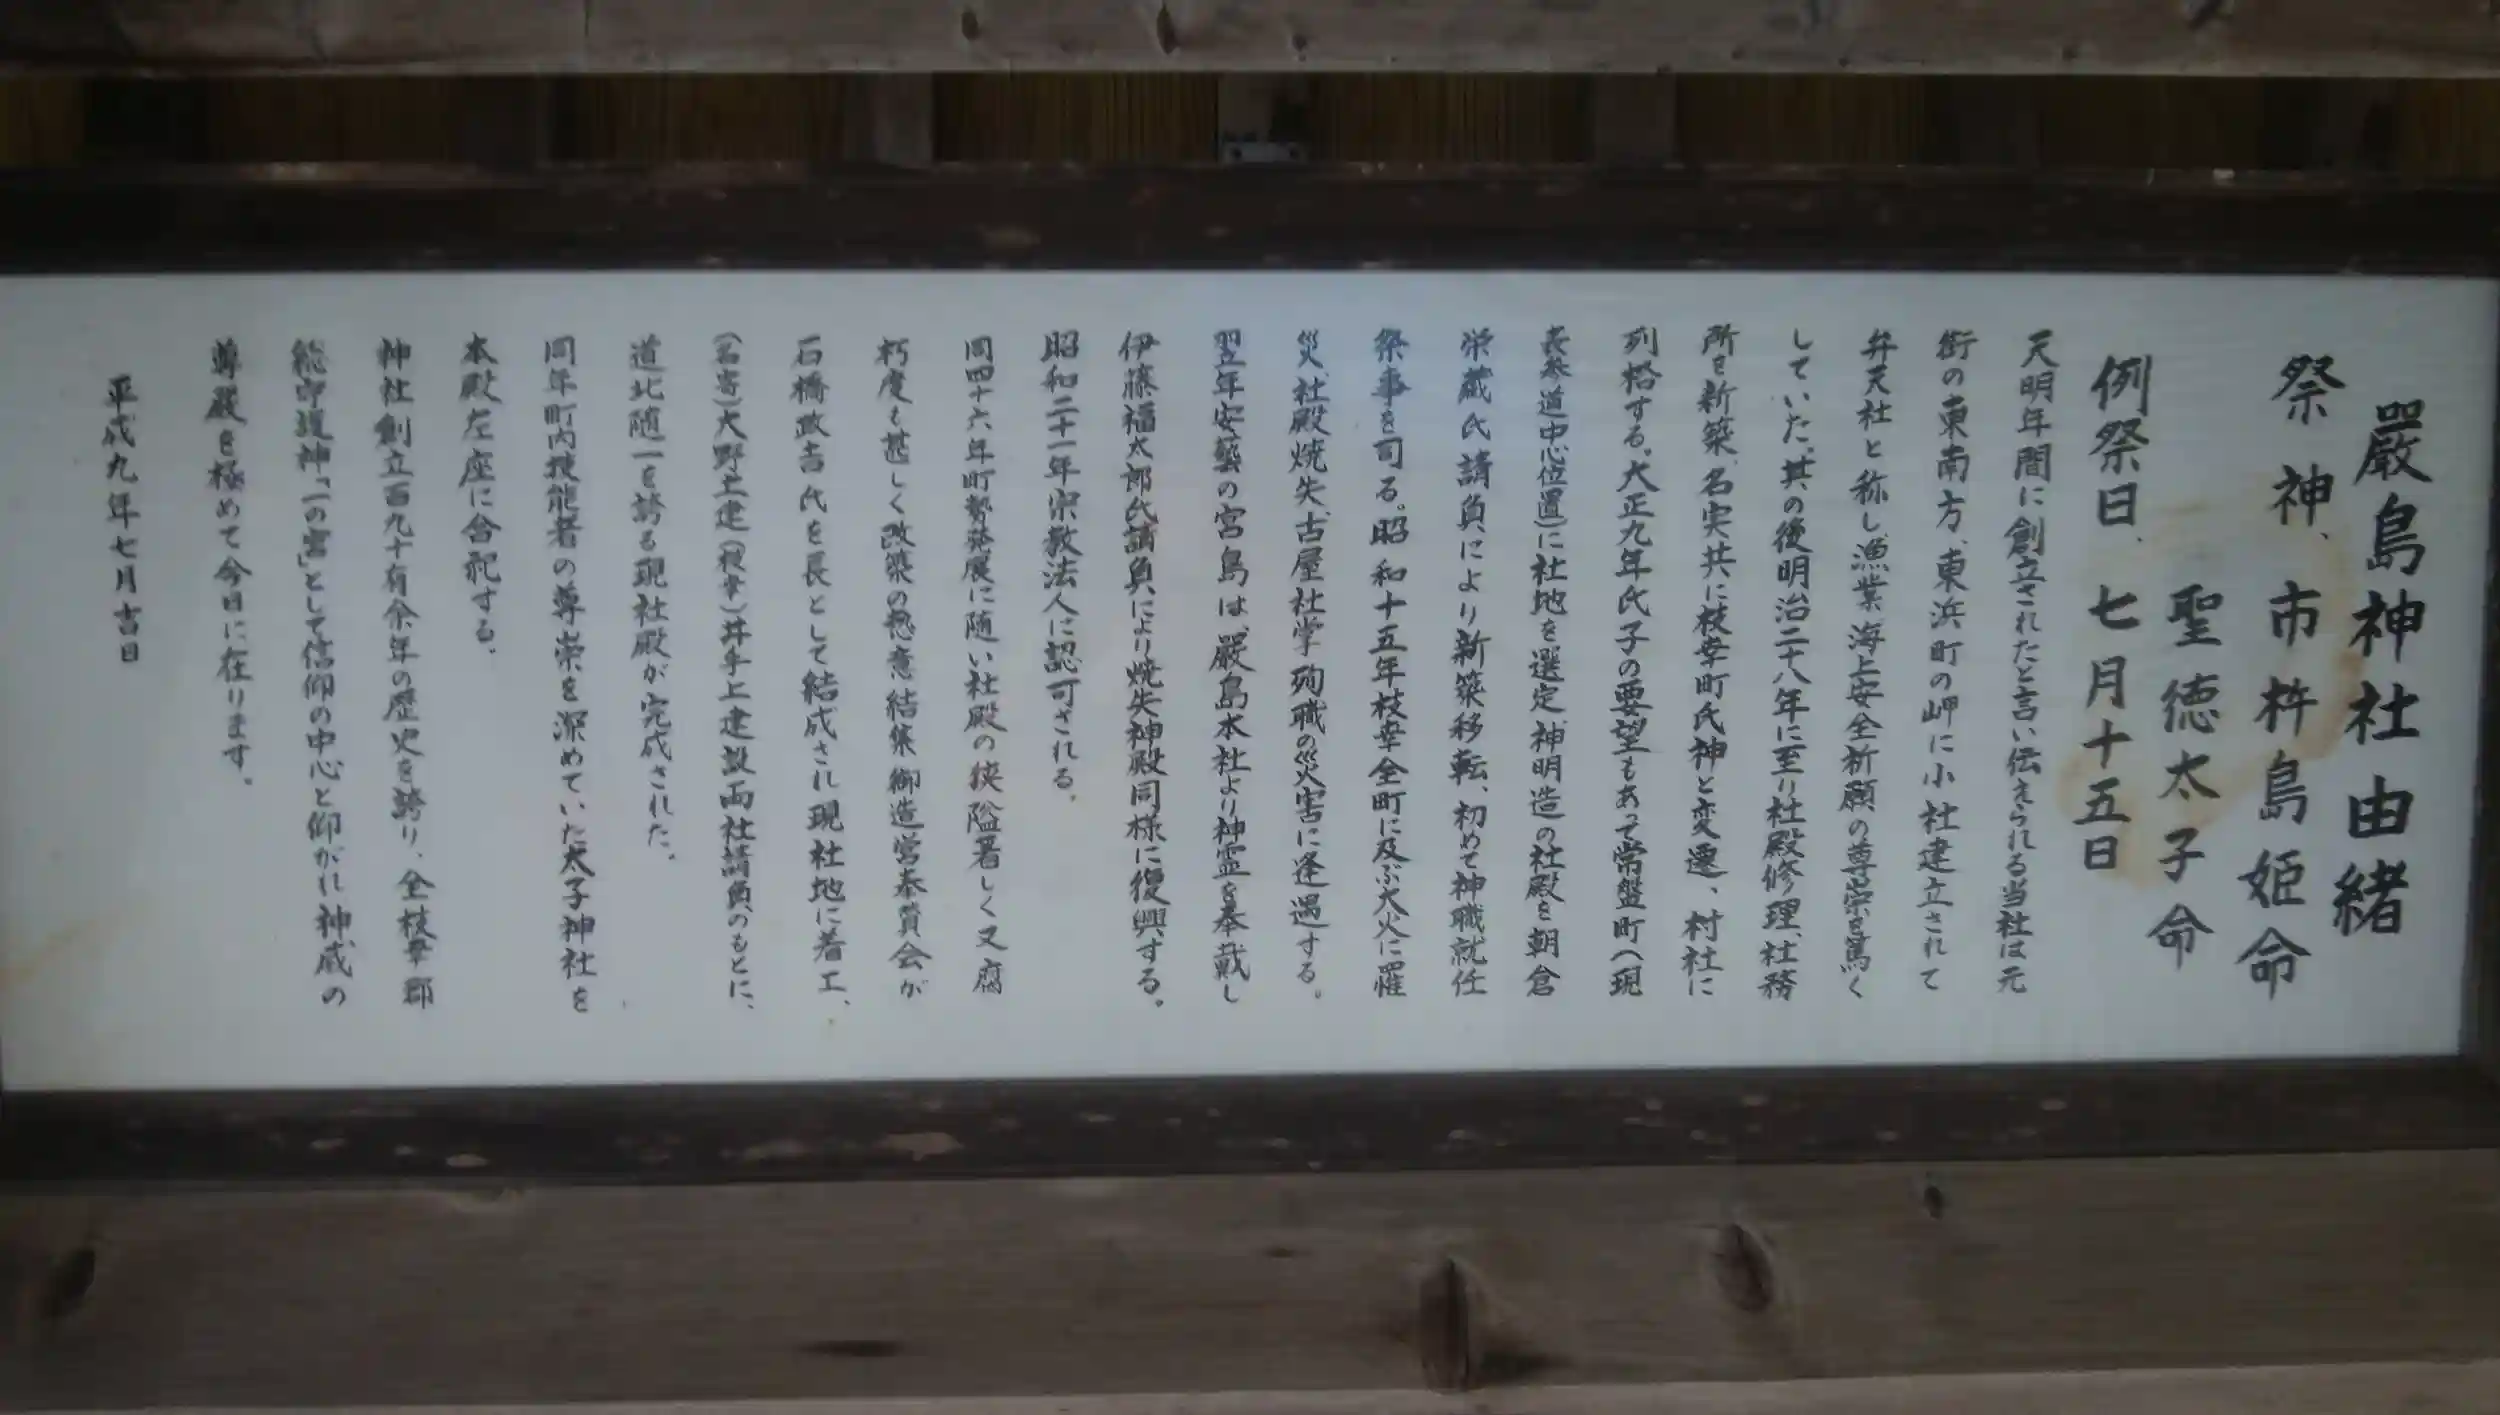 嚴島神社由緒
祭神、市杵島姫命
聖徳太子命
例祭日、七月十五日
天明年間に創立されたと言い伝えられる当社は元
街の東南方、東浜町の岬に小社建立されて
弁天社と称し漁業、海上安全祈願の尊崇を篤く
していた。其の後明治二十八年に至り社殿修理、社務
所を新築、名実共に枝幸町氏神と変遷、村社に
列格する。大正九年氏子の要望もあって常盤町(現
表参道中心位置)に社地を選定、神明造の社殿を朝倉
栄蔵氏請負により新築移転、初めて神職就任
祭事を司る。昭和十五年枝幸全町に及ぶ大火に罹
災、社殿焼失、古屋社掌殉職の災害に逢遇する。
翌年安藝の宮島は、嚴島本社より神霊を奉戴し
伊藤福太郎氏請負により焼失神殿同様に復興する。
昭和二十一年宗教法人に認可される。
同四十六年町勢発展に随い社殿の狭隘著しく又腐
朽度も甚しく改築の懇意結集御造営奉賛会が
石橋政吉氏を長として結成され現社地に着工、
(名寄)大野土建(枝幸)井手上建設両社請負のもとに、
道北随一を誇る現社殿が完成された。
同年町内技能者の尊崇を深めていた太子神社を
本殿左座に合祀する。
神社創立百九十有余年の歴史を誇り、全枝幸郡
総守護神「一の宮」として信仰の中心と仰がれ神威の
尊厳を極めて今日に在ります。
平成九年七月吉日